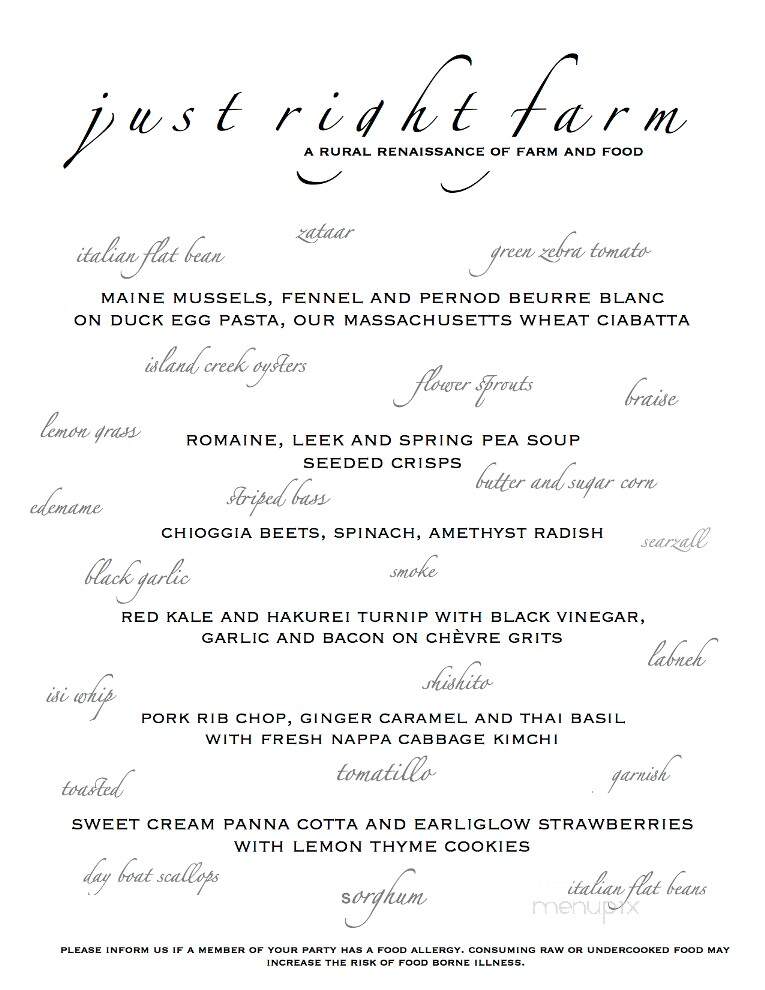 just right farm
A RURAL RENAISSANCE OF FARM AND FOOD
zataar
italian flat bean
green zebra tomato
MAINE MUSSELS, FENNEL AND PERNOD BEURRE BLANC
ON DUCK EGG PASTA, OUR MASSACHUSETTS WHEAT CIABATTA
island creek oysters
flower sprouts
braise
lemon grass
ROMAINE, LEEK AND SPRING PEA SOUP
SEEDED CRISPS
butter and sugar corn
striped bass
edemame
CHIOGGIA BEETS, SPINACH, AMETHYST RADISH
searzall
black garlic
smoke
RED KALE AND HAKUREI TURNIP WITH BLACK VINEGAR,
GARLIC AND BACON ON CHÈVRE GRITS
labneh
shishito
isi whip
PORK RIB CHOP, GINGER CARAMEL AND THAI BASIL
WITH FRESH NAPPA CABBAGE KIMCHI
tomatillo
garnish
toasted
SWEET CREAM PANNA COTTA AND EARLIGLOW STRAWBERRIES
WITH LEMON THYME COOKIES
day boat scallops
sorghum
italian flat beans
menupix
PLEASE INFORM US IF A MEMBER OF YOUR PARTY HAS A FOOD ALLERGY. CONSUMING RAW OR UNDERCOOKED FOOD MAY
INCREASE THE RISK OF FOOD BORNE ILLNESS.